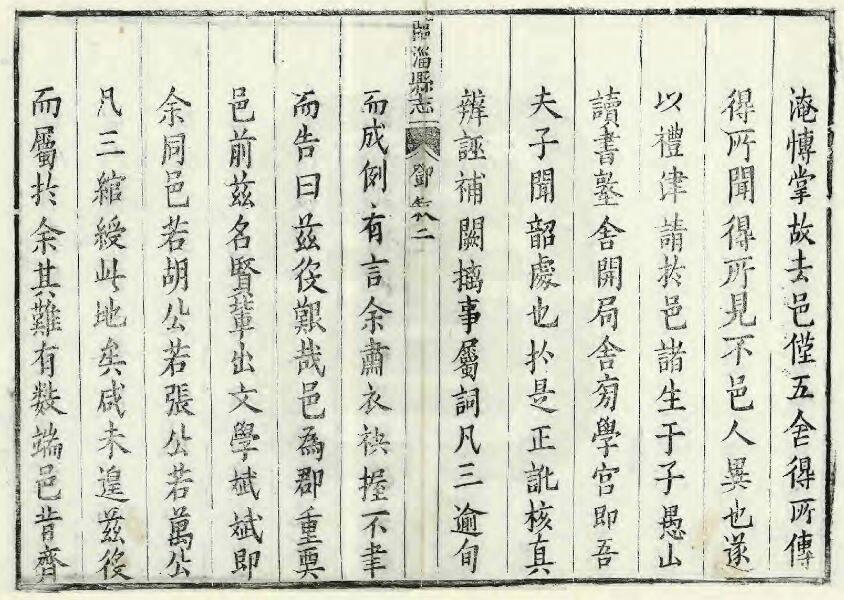 淹愽掌故去邑僅五舍得所傳
得所聞得所見不邑人異也遂
以禮津請於邑諸生于子愚山
讀書塾舍開局舍旁學宮即吾
夫子聞韶處也於是正訛核真
辨誣補闕摛事屬詞凡三逾旬
臨淄縣志 鄧敘二
而成例有言余肅衣袂握不聿
而告曰兹役艱哉邑為郡重
邑前兹名賢輩出文學斌斌即
余同邑若胡公若張公若萬公
凡三綰綬此地矣咸未遑兹役
而屬於余其難有数端邑昔齊